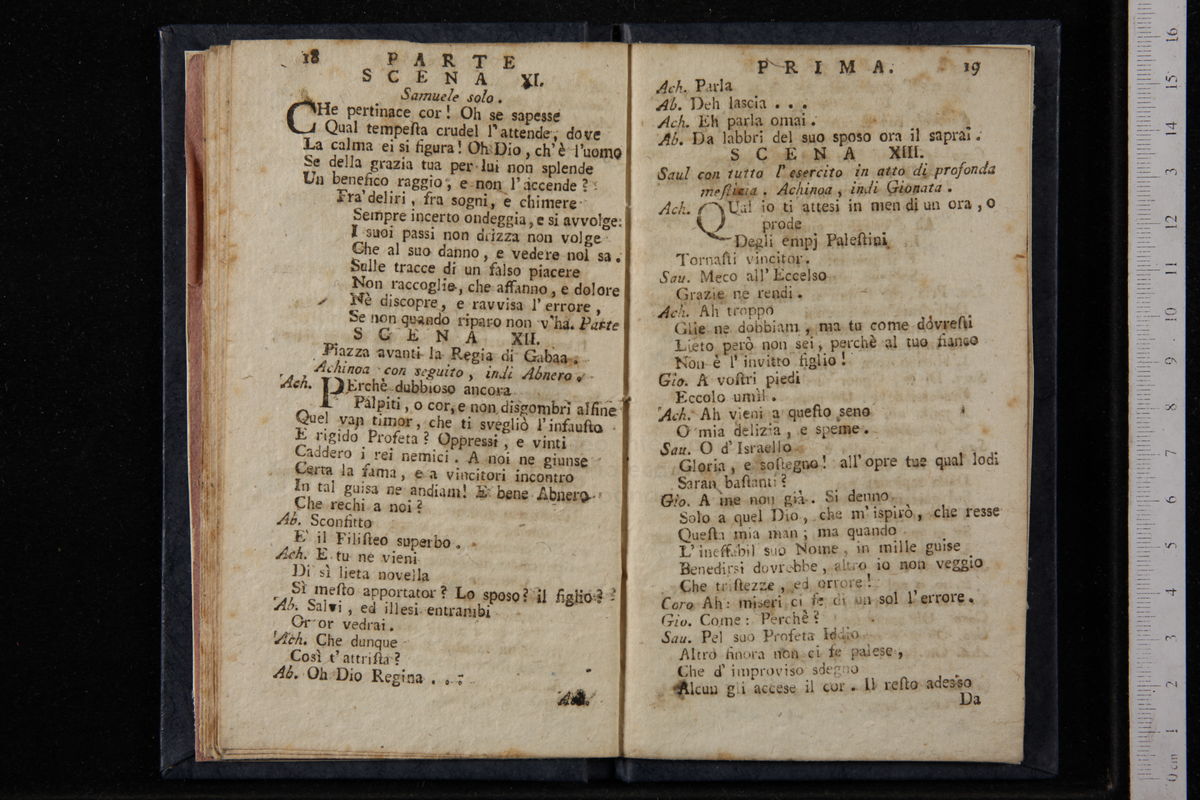 18 PARTE
SCENA XI.
Samuele solo.
CHe pertinace cor! Oh se sapesse
Qual tempeſta crudel l'attende, dove
La calma ei si figura! Oh Dio, ch'è l'uomo
Se della grazia tua per lui non splende
Un benefico raggio, e non l'accende?
Fra' deliri, fra sogni, e chimere
Sempre incerto ondeggia, e si avvolge:
I suoi passi non drizza non volge
Che al suo danno, e vedere nol sa.
Sulle tracce di un falso piacere
Non raccoglie, che affanno, e dolore
Nè discopre, e ravvisa l'errore,
Se non quando riparo non v'ha. Parte
SCENA XII.
Piazza avanti la Regia di Gabaa.
Achinoa con seguito, indi Abnero.
Ach. PErchè dubbioso ancora
Palpiti, o cor, e non disgombri alfine
Quel van timor, che ti svegliò l'infauſto
E rigido Profeta? Oppressi, e vinti
Caddero i rei nemici. A noi ne giunse
Certa la fama, e a vincitori incontro
In tal guisa ne andiam! E bene Abnero
Che rechi a noi?
Ab. Sconfitto
E' il Filiſteo superbo.
Ach. E tu ne vieni
Di sì lieta novella
Sì meſto apportator? Lo sposo? il figlio?
Ab. Salvi, ed illesi entrambi
Or or vedrai.
Ach. Che dunque
Così t'attriſta?
Ab. Oh Dio Regina . . .
Ach.
PRIMA. 19
Ach. Parla
Ab. Deh lascia . . .
Ach. Eh parla omai.
Ab. Da labbri del suo sposo ora il saprai.
SCENA XIII.
Saul con tutto l'esercito in atto di profonda
meſtizia. Achinoa, indi Gionata.
Ach. QUal io ti attesi in men di un ora, o
prode
Degli empj Paleſtini
Tornaſti vincitor.
Sau. Meco all'Eccelso
Grazie ne rendi.
Ach. Ah troppo
Glie ne dobbiam, ma tu come dovreſti
Lieto però non sei, perchè al tuo fianco
Non è l'invitto figlio!
Gio. A voſtri piedi
Eccolo umìl.
Ach. Ah vieni a queſto seno
O mia delizia, e speme.
Sau. O d'Israello
Gloria, e soſtegno! all'opre tue qual lodi
Saran baſtanti?
Gio. A me non già. Si denno
Solo a quel Dio, che m'ispirò, che resse
Queſta mia man; ma quando
L'ineffabil suo Nome, in mille guise
Benedirsi dovrebbe, altro io non veggio
Che triſtezze, ed orrore!
Coro Ah: miseri ci fe di un sol l'errore.
Gio. Come: Perchè?
Sau. Pel suo Profeta Iddio
Altro finora non ci fe palese,
Che d'improviso sdegno
Alcun gli accese il cor. Il reſto adesso
Da